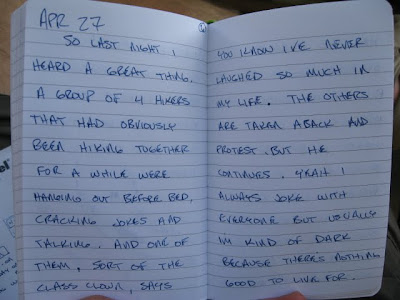 APR 27
SO LAST NIGHT I
HEARD A GREAT THING.
A GROUP OF 4 HIKERS
THAT HAD OBVIOUSLY
BEEN HIKING TOGETHER
FOR A WHILE WERE
HANGING OUT BEFORE BED,
CRACKING JOKES AND
TALKING. AND ONE OF
THEM, SORT OF THE
CLASS CLOWN, SAYS
YOU KNOW I'VE NEVER
LAUGHED SO MUCH IN
MY LIFE. THE OTHERS
ARE TAKEN ABACK AND
PROTEST. BUT HE
CONTINUES. YEAH I
ALWAYS JOKE WITH
EVERYONE BUT USUALLY
IM KIND OF DARK
BECAUSE THERES NOTHING
GOOD TO LIVE FOR.